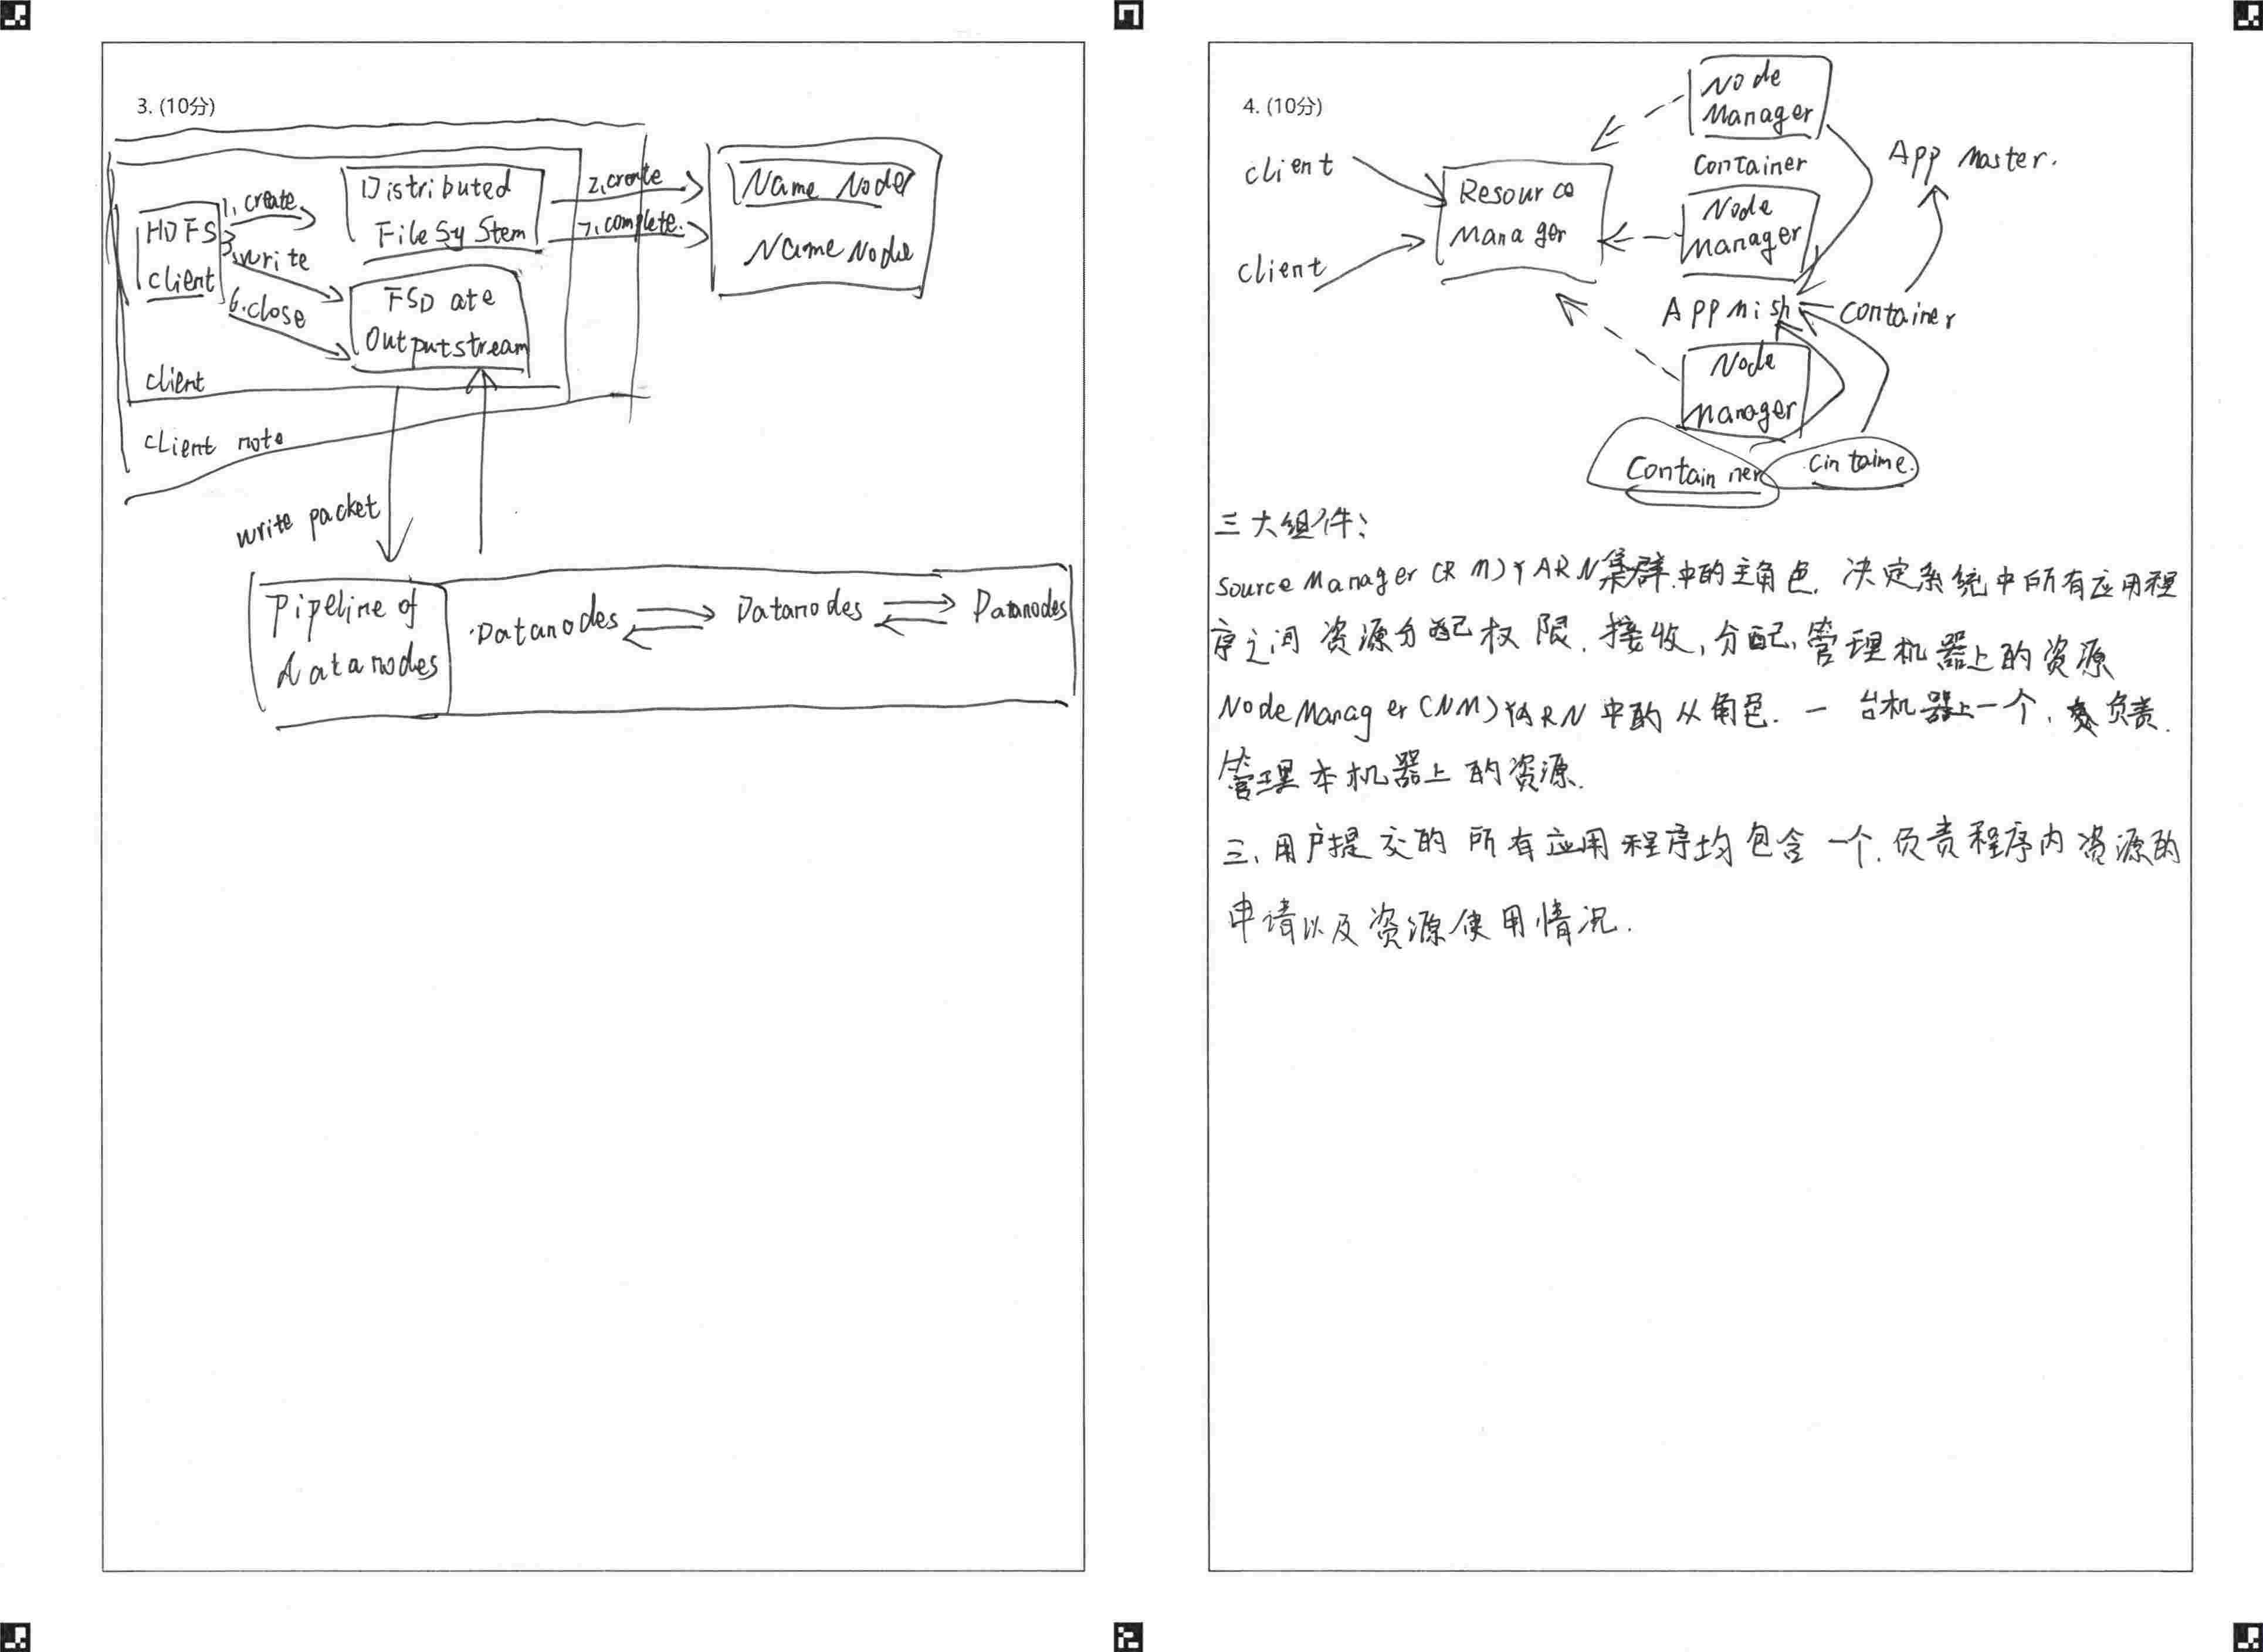 3. (10分)
1. create
Distributed
File System
2. create
7. complete.
Name Node
Name Node
HDFS
client
3. write
6. close
FSD ate
Outputstream
client
client note
write packet
Pipeline of
datanodes
Datanodes
Datanodes
Datanodes
4. (10分)
client
client
Resource
Manager
Node
Manager
Container
Node
Manager
App Master.
App Mish
Container
Node
Manager
Contain ner
Cin taime.
三大组件:
Source Manager (RM) YARN集群中的主角色. 决定系统中所有应用程
序之间资源分配权限. 接收, 分配, 管理机器上的资源
Node Manager (NM) YARN中的从角色. 一台机器上一个, 负责.
管理本机器上的资源.
三. 用户提交的所有应用程序均包含一个. 负责程序内资源的
申请以及资源使用情况.